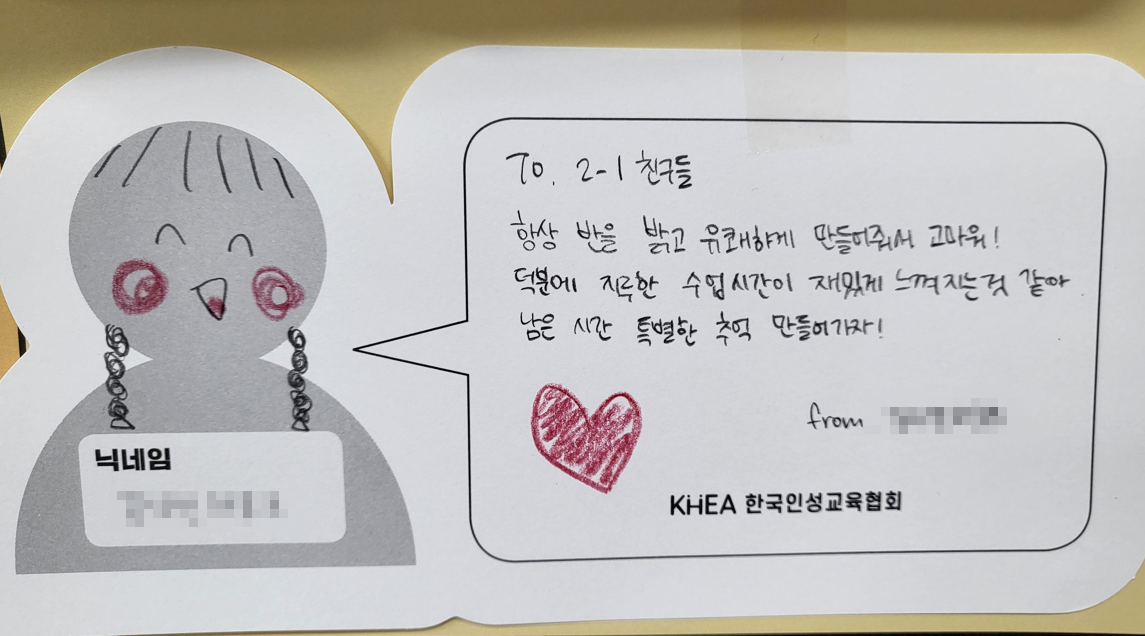 To. 2-1 친구들
항상 반을 밝고 유쾌하게 만들어줘서 고마워!
덕분에 지루한 수업시간이 재밌게 느껴지는것 같아
남은 시간 특별한 추억 만들어가자!
from
KHEA 한국인성교육협회
닉네임